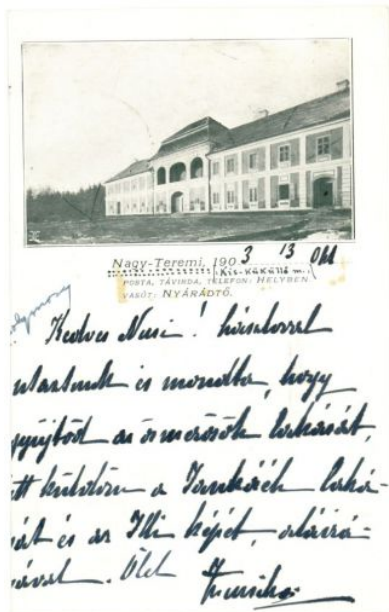 Nagy-Teremi, 1903 13 Okt
(Kis-Küküllő m.,
POSTA, TÁVIRDA, TELEFON: HELYBEN
VASÚT: NYÁRÁDTŐ.
Kedves Nusi!
és mondta, hogy
az ösmerősök lakását,
itt küldöm a Jankáék laká-
sát és az Illi képét, aláírá-
sával. Ölel